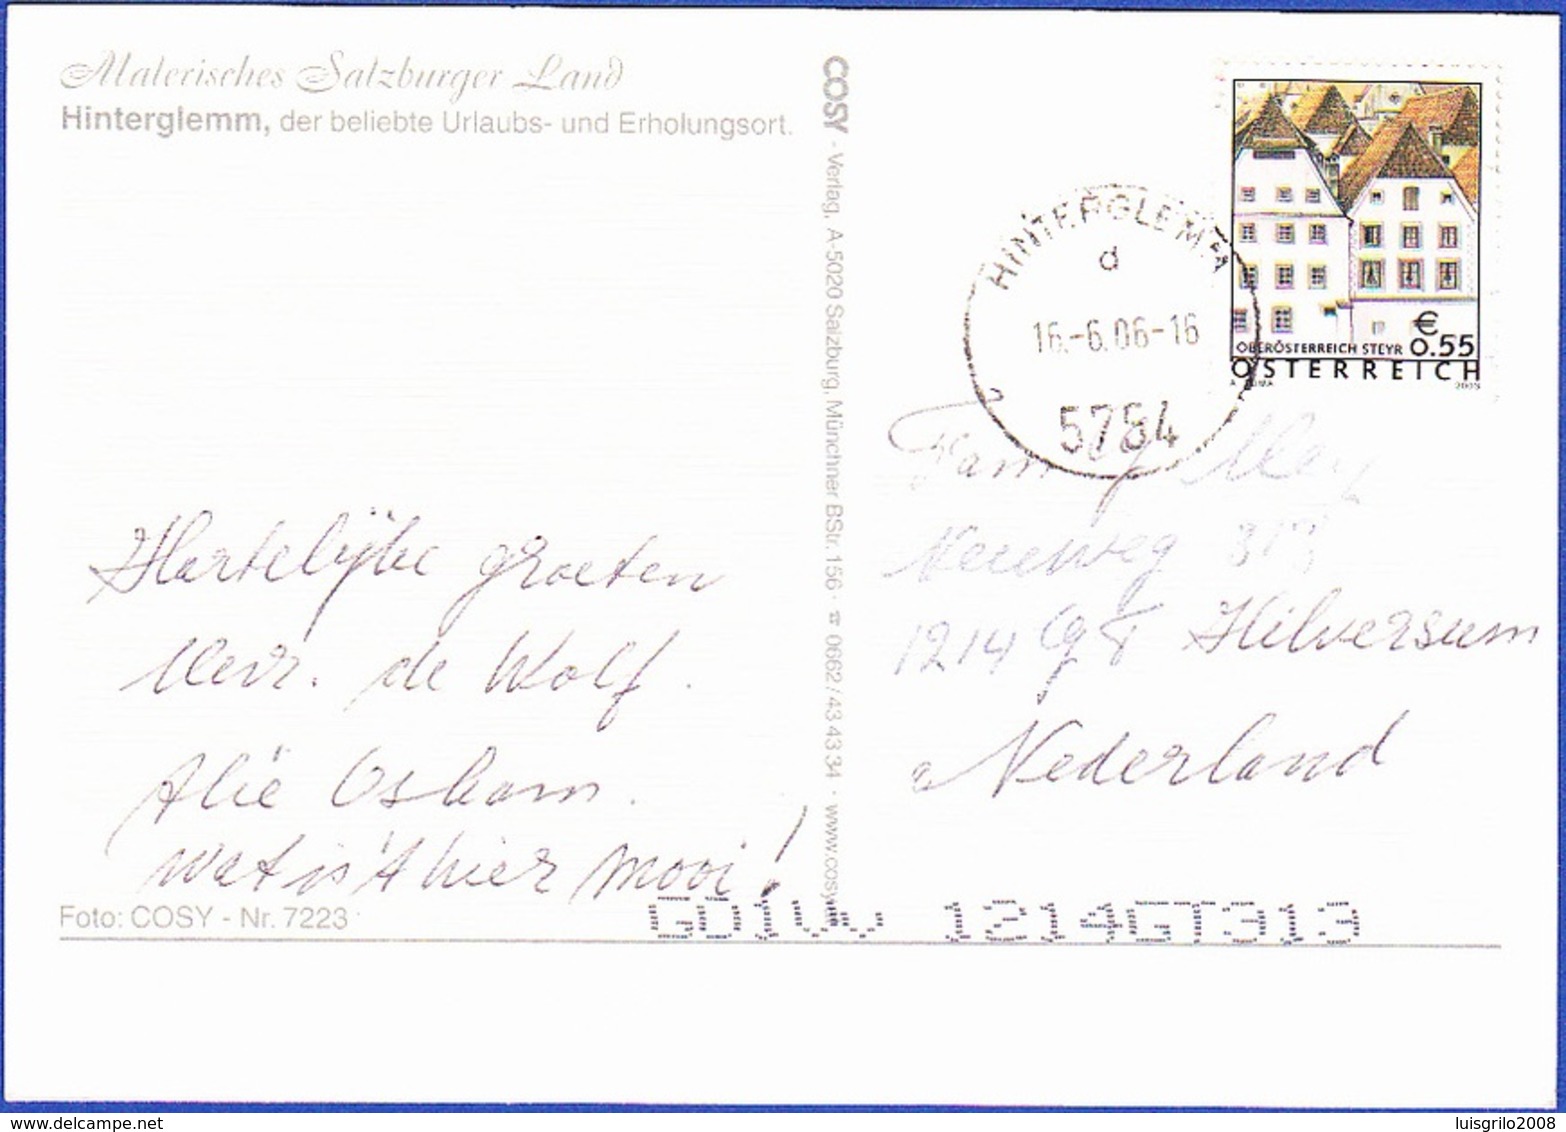 Malerisches Salzburger Land
Hinterglemm, der beliebte Urlaubs- und Erholungsort.
COSY - Verlag, A-5020 Salzburg, Münchner BStr. 156 · ☎ 0662/43 43 34 · www.cosy
HINTERGLEMM
d
16.-6.06-16
5754
€
OBERÖSTERREICH STEYR 0.55
ÖSTERREICH
2003
Hartelijke groeten
Mevr. de Wolf.
Alie Osham.
wat is 't hier mooi!
Fam
313
1214 GT Hilversum
Nederland
Foto: COSY - Nr. 7223
1214GT313
www.delcampe.net
luisgrilo2008